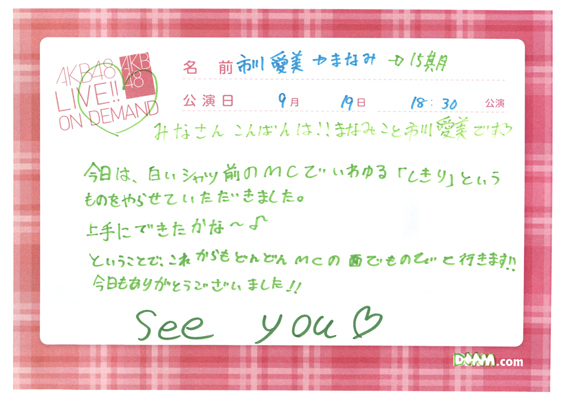 AKB48
LIVE!!
ON DEMAND
AKB
48
名 前 市川愛美 まなみ → 15期
公演日 9月 19日 18:30 公演
みなさん こんばんは!! まなみこと市川愛美です
今日は、白いシャツ前のMCでいわゆる「しきり」という
ものをやらせていただきました。
上手にできたかな〜♪
ということで、これからもどんどんMCの面でものびて行きます!!
今日もありがとうございました!!
see you♡
DMM.com